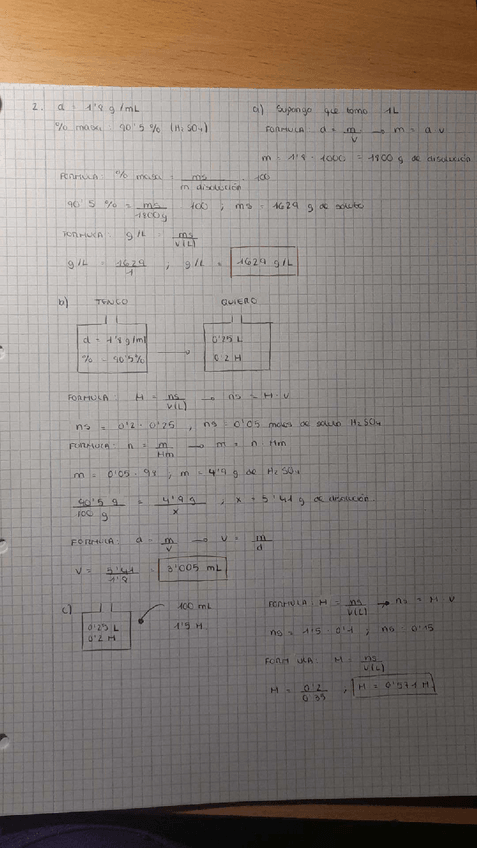 2. d = 1'8 g/mL
% masa: 90'5 % (H2SO4)
a) Supongo que tomo 1L
FORMULA d = m/V → m = d · v
m = 1'8 · 1000 = 1800 g de disolución
FORMULA: % masa = ms/m disolución · 100
90'5 % = ms/1800g · 100 ; ms = 1629 g de soluto
FORMULA: g/L = ms/V(L)
g/L = 1629/1 ; g/L = 1629 g/L
b) TENGO QUIERO
d = 1'8 g/ml → 0'25 L
% = 90'5% 0'2 M
FORMULA: M = ns/V(L) → ns = M · V
ns = 0'2 · 0'25 , ns = 0'05 moles de soluto H2SO4
FORMULA: n = m/Mm → m = n · Mm
m = 0'05 · 98 ; m = 4'9 g de H2SO4
90'5 g/100 g = 4'9 g/x , x = 5'41 g de disolución
FORMULA: d = m/V → V = m/d
V = 5'41/1'8 = 3'005 mL
c) 100 mL
0'25 L 1'5 M
0'2 M
FORMULA: M = ns/V(L) → ns = M · V
ns = 1'5 · 0'1 ; ns = 0'15
FORMULA: M = ns/V(L)
M = 0'2/0'35 ; M = 0'571 M